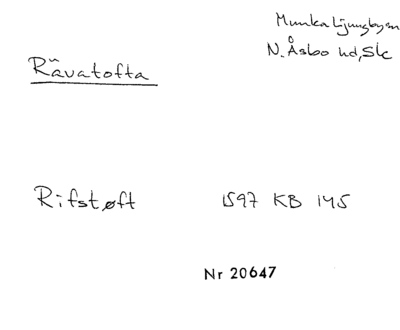 Munka Ljungby sn
N. Åsbo hd, Sk
Rävatofta
Rifstøft 1597 KB 145
Nr 20647